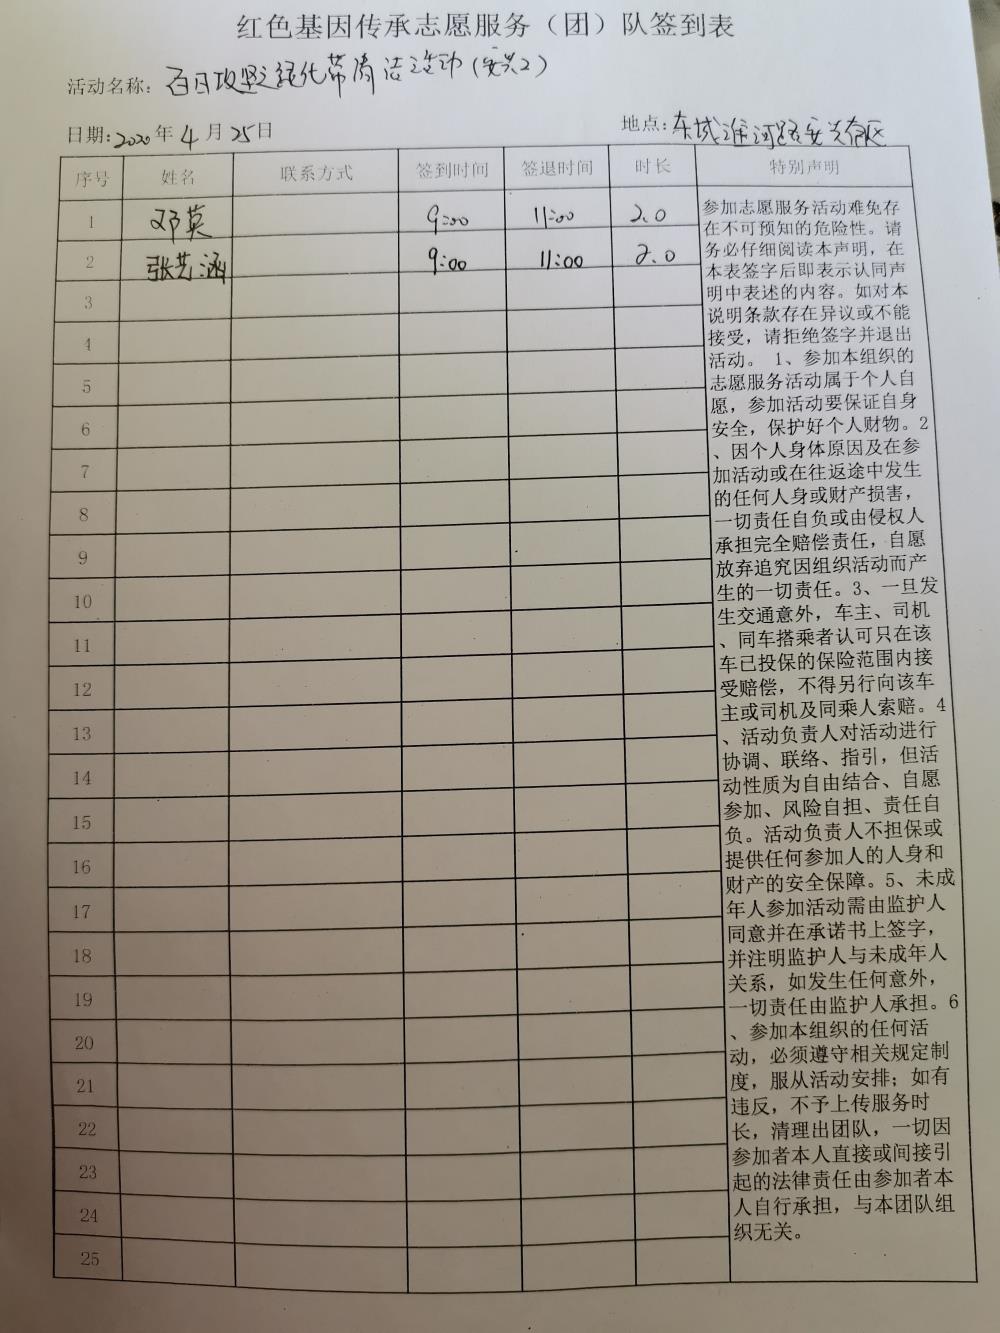 红色基因传承志愿服务（团）队签到表
活动名称：百日攻坚之绿化带清洁活动（安兴2）
日期：2020年4月25日 地点：东城淮河路安兴南区
序号 姓名 联系方式 签到时间 签退时间 时长 特别声明
1 邓英 9:00 11:00 2.0
2 张艺涵 9:00 11:00 2.0
3
4
5
6
7
8
9
10
11
12
13
14
15
16
17
18
19
20
21
22
23
24
25
参加志愿服务活动难免存
在不可预知的危险性。请
务必仔细阅读本声明，在
本表签字后即表示认同声
明中表述的内容。如对本
说明条款存在异议或不能
接受，请拒绝签字并退出
活动。 1、参加本组织的
志愿服务活动属于个人自
愿，参加活动要保证自身
安全，保护好个人财物。2
、因个人身体原因及在参
加活动或在往返途中发生
的任何人身或财产损害，
一切责任自负或由侵权人
承担完全赔偿责任，自愿
放弃追究因组织活动而产
生的一切责任。3、一旦发
生交通意外，车主、司机
、同车搭乘者认可只在该
车已投保的保险范围内接
受赔偿，不得另行向该车
主或司机及同乘人索赔。4
、活动负责人对活动进行
协调、联络、指引，但活
动性质为自由结合、自愿
参加、风险自担、责任自
负。活动负责人不担保或
提供任何参加人的人身和
财产的安全保障。5、未成
年人参加活动需由监护人
同意并在承诺书上签字，
并注明监护人与未成年人
关系，如发生任何意外，
一切责任由监护人承担。6
、参加本组织的任何活
动，必须遵守相关规定制
度，服从活动安排；如有
违反，不予上传服务时
长，清理出团队，一切因
参加者本人直接或间接引
起的法律责任由参加者本
人自行承担，与本团队组
织无关。